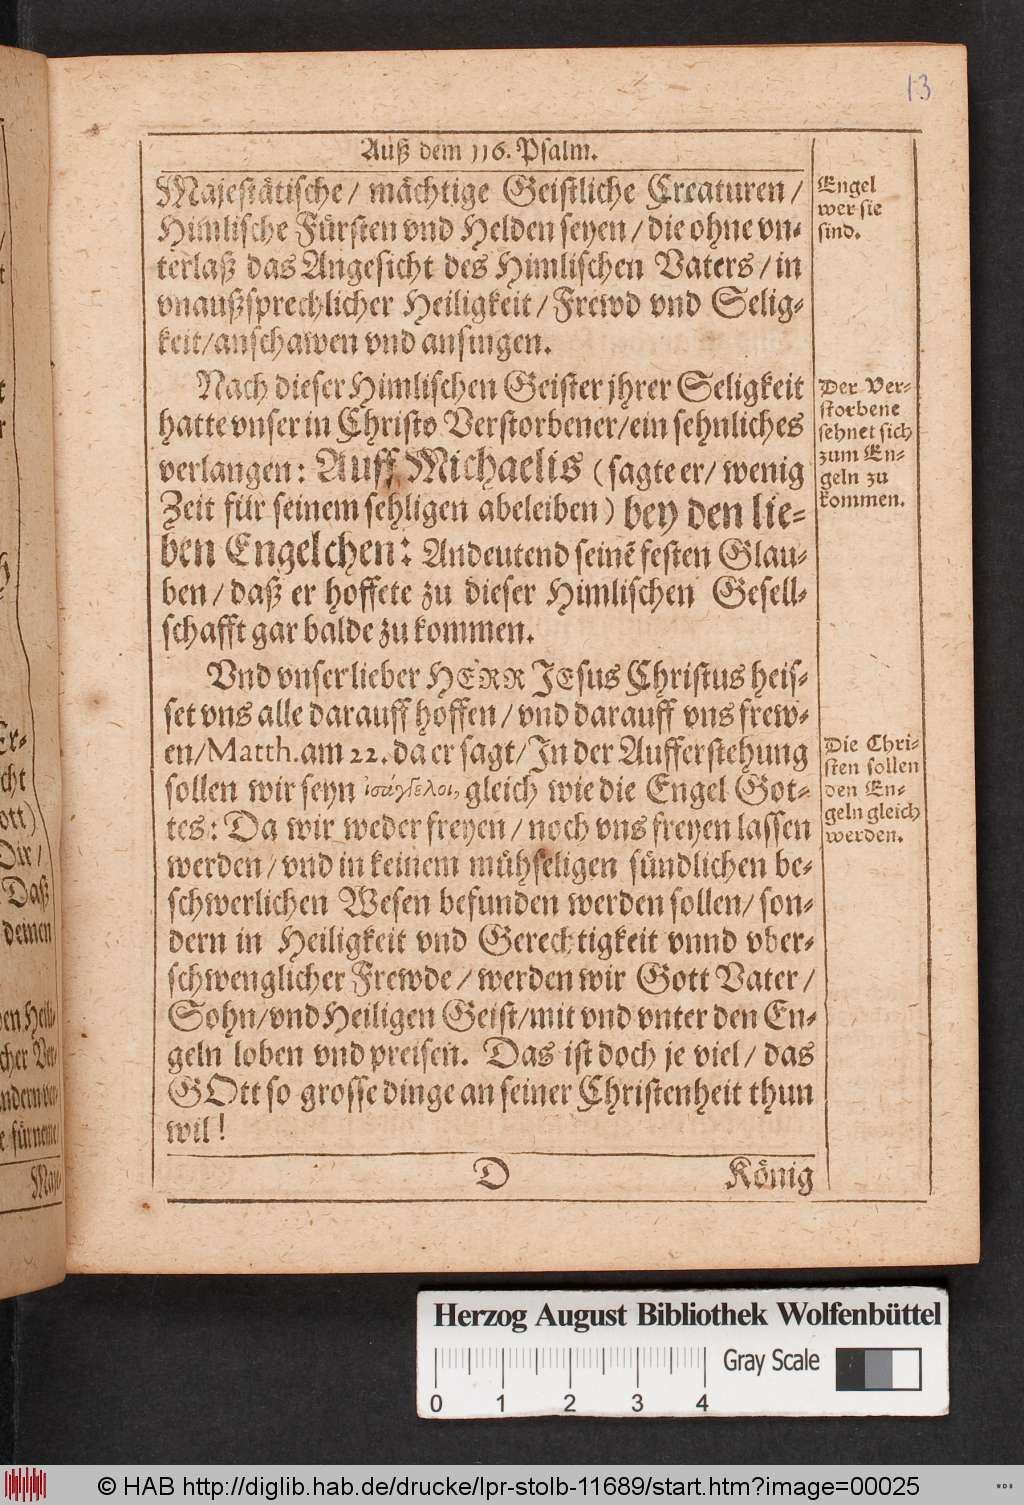 13
Auß dem 116. Psalm.
Majestätische / mächtige Geistliche Creaturen /
Himlische Fürsten vnd Helden seyen / die ohne vn-
terlaß das Angesicht des Himlischen Vaters / in
vnaußsprechlicher Heiligkeit / Frewd vnd Selig-
keit/anschawen vnd ansingen.
Engel
wer sie
sind.
Nach dieser Himlischen Geister jhrer Seligkeit
hatte vnser in Christo Verstorbener/ein sehnliches
verlangen: Auff Michaelis (sagte er/ wenig
Zeit für seinem sehligen abeleiben) bey den lie-
ben Engelchen: Andeutend seinẽ festen Glau-
ben / daß er hoffete zu dieser Himlischen Gesell-
schafft gar balde zu kommen.
Der Ver-
storbene
sehnet sich
zum En-
geln zu
kommen.
Vnd vnser lieber HERR JEsus Christus heis-
set vns alle darauff hoffen / vnd darauff vns frew-
en/Matth. am 22. da er sagt/ In der Aufferstehung
sollen wir seyn ἰσάγγελοι, gleich wie die Engel Got-
tes: Da wir weder freyen / noch vns freyen lassen
werden / vnd in keinem mühseligen sündlichen be-
schwerlichen Wesen befunden werden sollen/ son-
dern in Heiligkeit vnd Gerechtigkeit vnnd vber-
schwenglicher Frewde / werden wir Gott Vater /
Sohn/vnd Heiligen Geist/mit vnd vnter den En-
geln loben vnd preisen. Das ist doch je viel / das
GOtt so grosse dinge an seiner Christenheit thun
wil!
Die Chri-
sten sollen
den En-
geln gleich
werden.
D König
Er-
cht
ott)
Dir /
Daß
deinen
en Heili-
cher Ver-
ndern ver-
e fürneme
Maje-
Herzog August Bibliothek Wolfenbüttel
Gray Scale
0 1 2 3 4
© HAB http://diglib.hab.de/drucke/lpr-stolb-11689/start.htm?image=00025